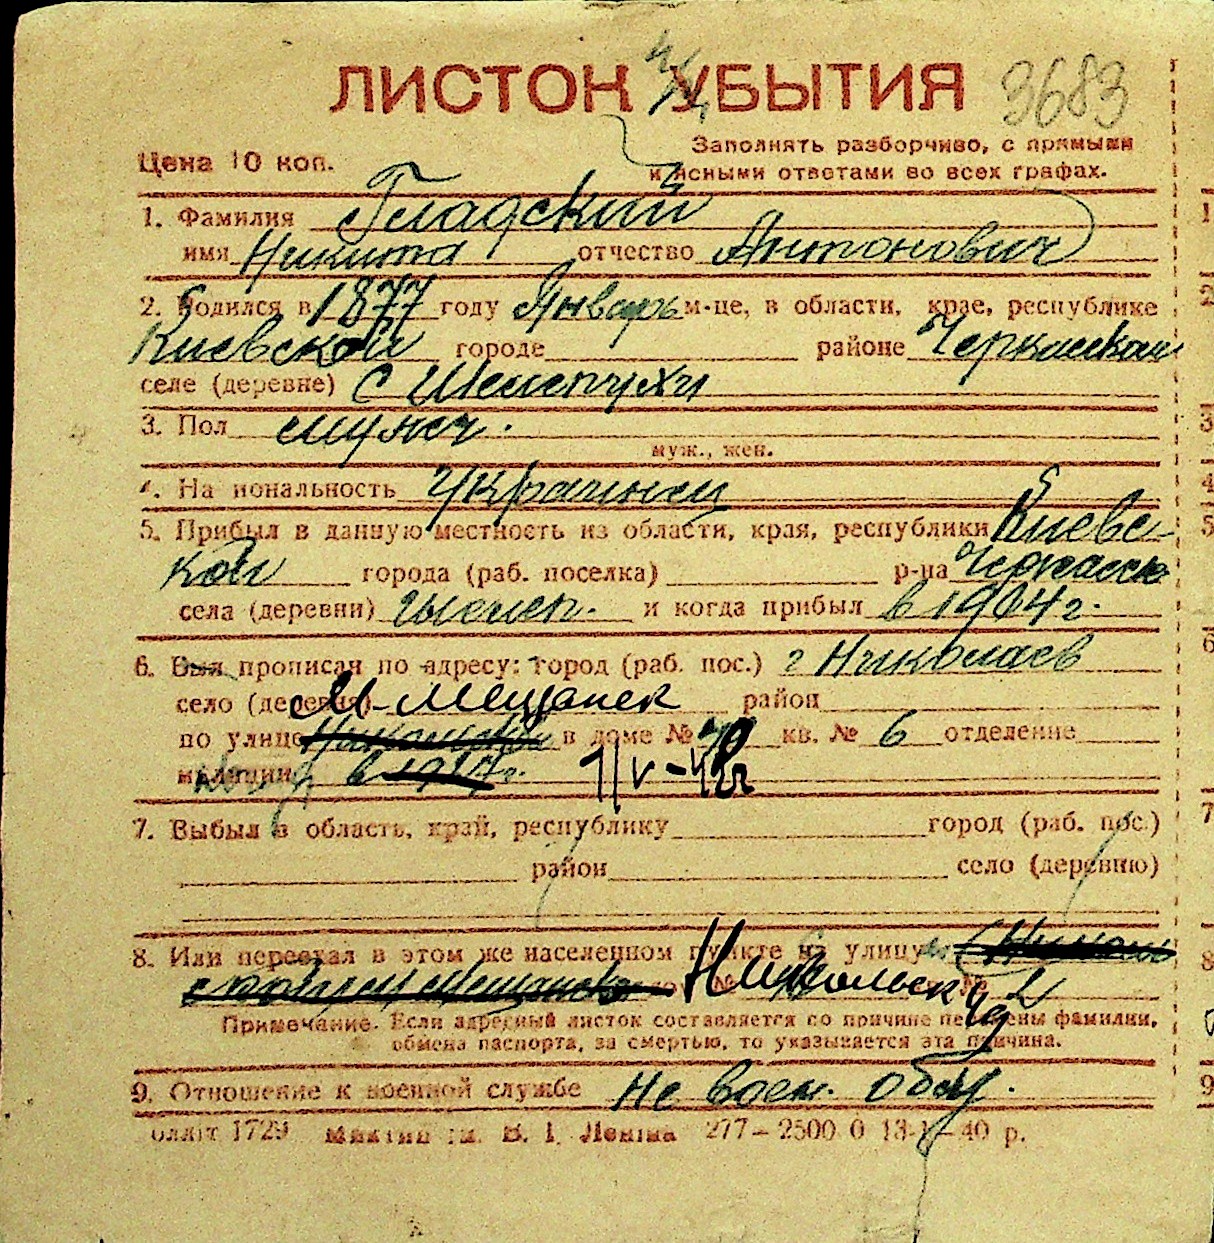 ЛИСТОК УБЫТИЯ 3683
Цена 10 коп.
Заполнять разборчиво, с прямыми
и ясными ответами во всех графах.
1. Фамилия Гладский
имя Никита отчество Антонович
2. Родился в 1877 году Январь м-це, в области, крае, республике
Киевской городе районе Черкасском
селе (деревне) с Шелепухи
3. Пол мужск.
муж., жен.
4. Национальность Украинец
5. Прибыл в данную местность из области, края, республики Киевс-
кой города (раб. поселка) р-на Черкасск
села (деревни) Шелеп. и когда прибыл в 1904 г.
6. Был прописан по адресу: город (раб. пос.) г Николаев
село (деревня) М-Мещанск район
по улице в доме № кв. № 6 отделение
милиции 1/V-42г
7. Выбыл в область, край, республику город (раб. пос.)
район село (деревню)
8. Или переехал в этом же населенном пункте на улицу
Никольск 49
Примечание. Если адресный листок составляется по причине перемены фамилии,
обмена паспорта, за смертью, то указывается эта причина.
9. Отношение к военной службе Не воен. обяз.
1729 В. І. Леніна 277—2500 0 40 р.